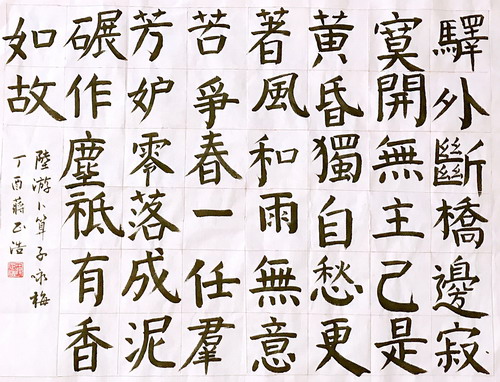 驛外斷橋邊寂
寞開無主己是
黃昏獨自愁更
著風和雨無意
苦爭春一任羣
芳妒零落成泥
碾作塵祗有香
如故
陸游卜算子詠梅
丁酉蔣正浩